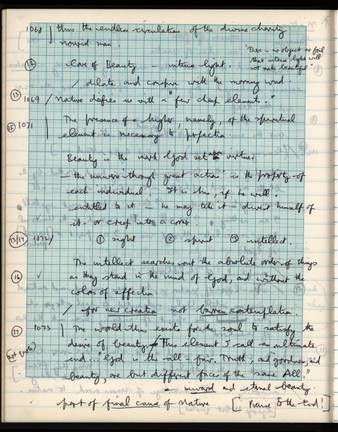 1068 | thus the endless circulation of the divine charity
nourish man.
"There is no object so foul
that intense light will
not make beautiful"
(12) Love of Beauty – intense light.
/ dilate and conspire with the morning wind.
(13)
1069 / Nature deifies us with a "few cheap elements."
(15) 1071 | The presence of a higher, namely, of the spiritual
element is necessary to perfection
Beauty is the mark God sets virtue
– the universe through great actions is the property of
each individual. It is his, if he will.
entitled to it – he may take it – divest himself of
it or creep into a corner
1072/ ① sight ② spirit ③ intellect.
(16) The intellect searches out the absolute order of things
as they stand in the mind of God, and without the
colors of affection
/ for new creation not barren contemplation
(17) 1073 / The world thus exists for the soul to satisfy the
desire of beauty. This element I call an ultimate
end.. "God is the all-fair. Truth, and goodness, and
beauty, are but different faces of the same All."
– inward and eternal beauty.
part of final cause of Nature [: Praise to the End!]